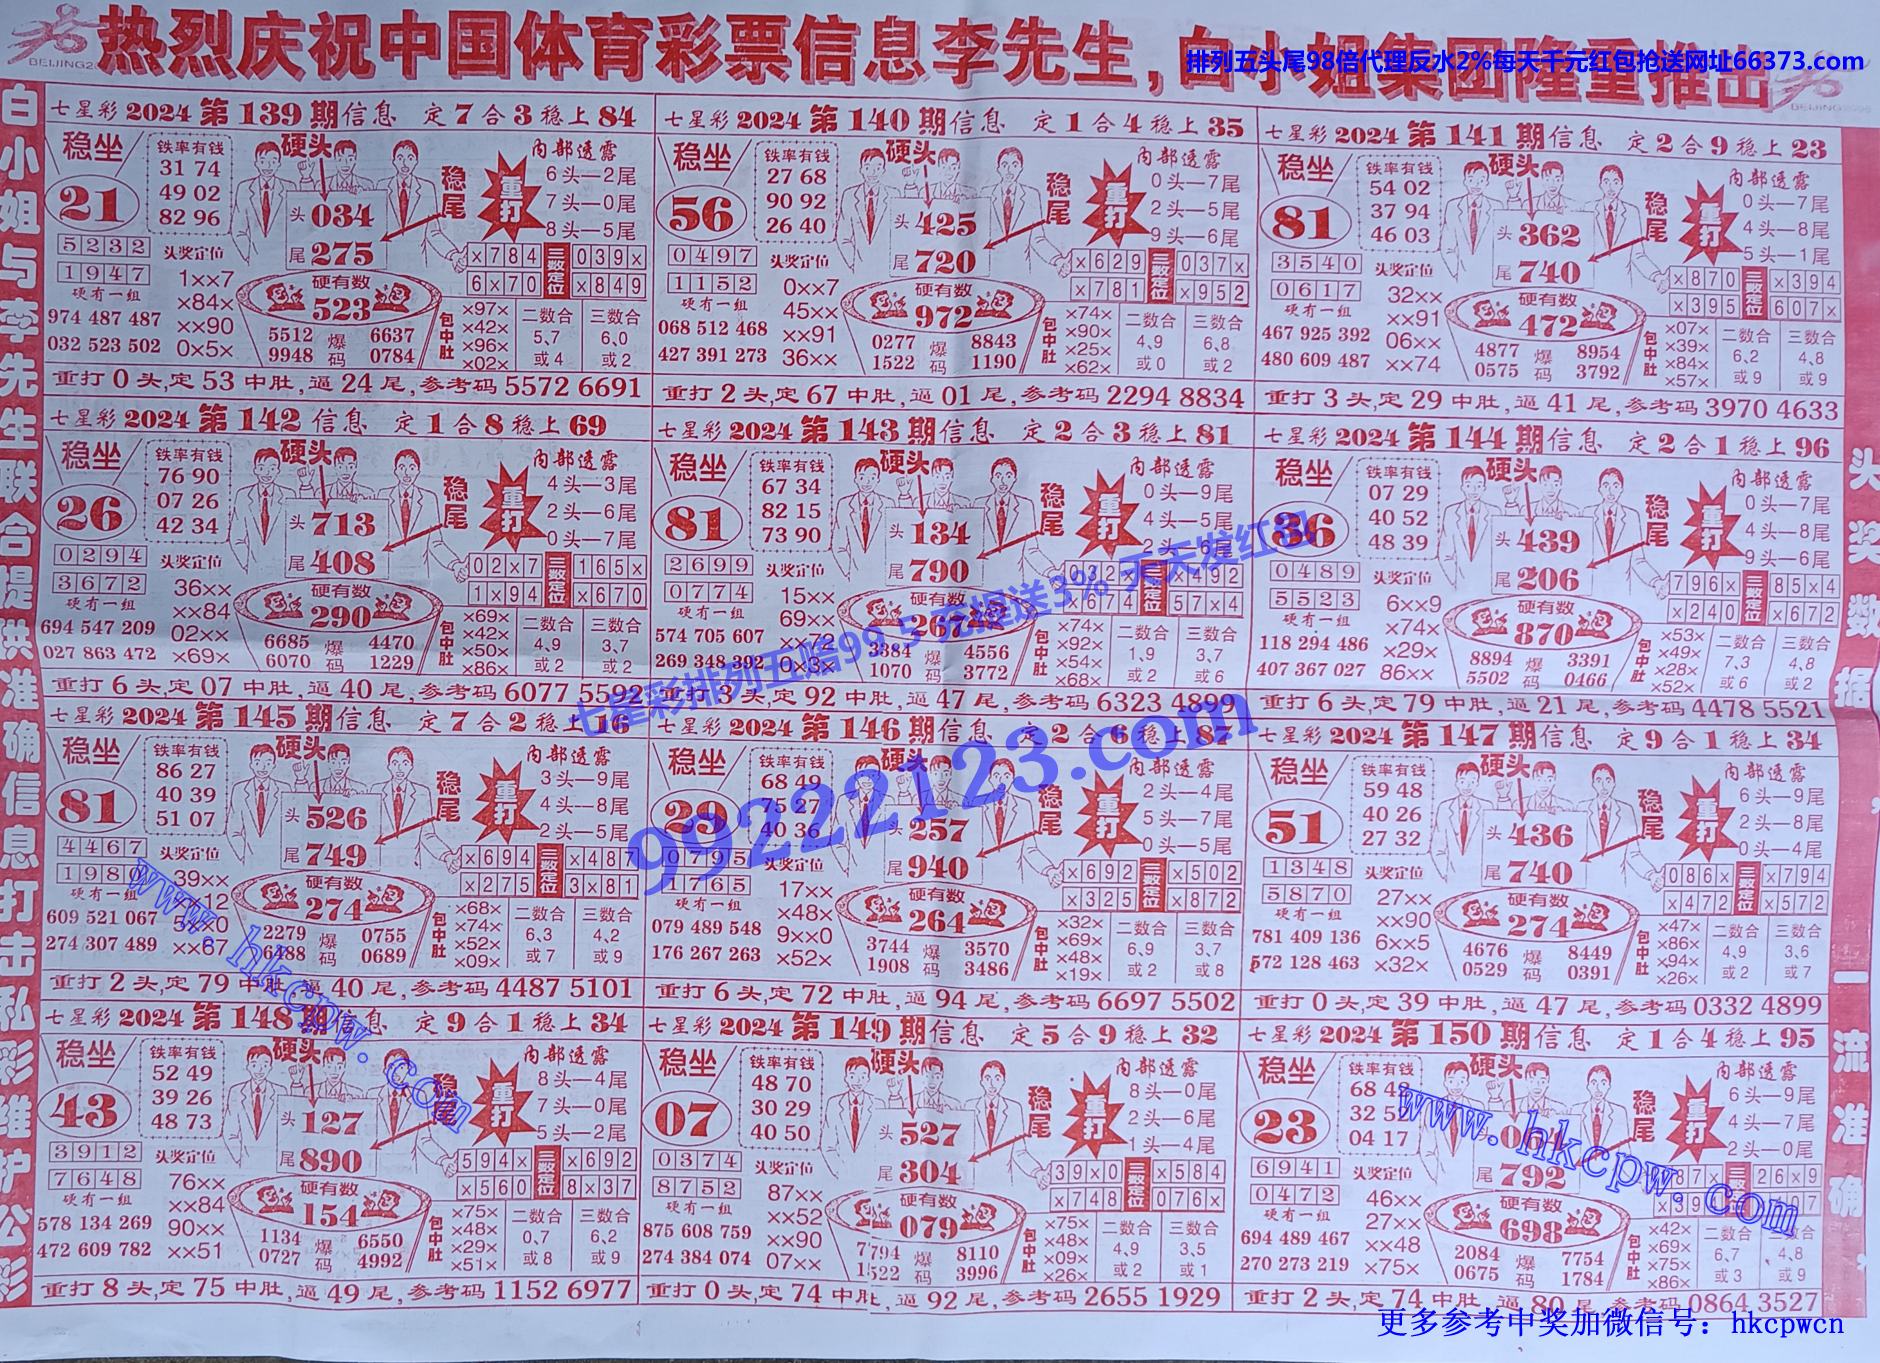 热烈庆祝中国体育彩票信息李先生，白小姐集团隆重推出
排列五头尾98倍代理反水2%每天千元红包抢送网址66373.com
BEIJING2
白小姐与李先生联合提供准确信息打击私彩维护公彩
七星彩 2024 第 139 期信息 定 7 合 3 稳上 84
稳坐 21
铁率有钱
31 74
49 02
82 96
硬头
头 034
尾 275
稳尾
重打
内部透露
6头—2尾
7头—0尾
8头—5尾
5232
1947
头奖定位
1××7
×84×
××90
0×5×
硬有一组
974 487 487
032 523 502
硬有数
523
5512 爆 6637
9948 码 0784
×784 三数定位 039×
6×70 ×849
包中肚
×97×
×42×
×96×
×02×
二数合
5、7
或 4
三数合
6、0
或 2
重打 0 头,定 53 中肚,逼 24 尾,参考码 5572 6691
七星彩 2024 第 140 期信息 定 1 合 4 稳上 35
稳坐 56
铁率有钱
27 68
90 92
26 40
硬头
头 425
尾 720
稳尾
重打
内部透露
0头—7尾
2头—5尾
9头—6尾
0497
1152
头奖定位
0××7
45××
××91
36××
硬有一组
068 512 468
427 391 273
硬有数
972
0277 爆 8843
1522 码 1190
×629 三数定位 037×
×781 ×952
包中肚
×74×
×90×
×25×
×62×
二数合
4、9
或 0
三数合
6、8
或 2
重打 2 头,定 67 中肚,逼 01 尾,参考码 2294 8834
七星彩 2024 第 141 期信息 定 2 合 9 稳上 23
稳坐 81
铁率有钱
54 02
37 94
46 03
硬头
头 362
尾 740
稳尾
重打
内部透露
0头—7尾
4头—8尾
5头—1尾
3540
0617
头奖定位
32××
××91
06××
××74
硬有一组
467 925 392
480 609 487
硬有数
472
4877 爆 8954
0575 码 3792
×870 三数定位 ×394
×395 607×
包中肚
×07×
×39×
×84×
×57×
二数合
6、2
或 9
三数合
4、8
或 9
重打 3 头,定 29 中肚,逼 41 尾,参考码 3970 4633
七星彩 2024 第 142 期信息 定 1 合 8 稳上 69
稳坐 26
铁率有钱
76 90
07 26
42 34
硬头
头 713
尾 408
稳尾
重打
内部透露
4头—3尾
2头—6尾
0头—7尾
0294
3672
头奖定位
36××
××84
02××
×69×
硬有一组
694 547 209
027 863 472
硬有数
290
6685 爆 4470
6070 码 1229
02×7 三数定位 165×
1×94 ×670
包中肚
×69×
×42×
×50×
×86×
二数合
4、9
或 2
三数合
3、7
或 2
重打 6 头,定 07 中肚,逼 40 尾,参考码 6077 5592
七星彩 2024 第 143 期信息 定 2 合 3 稳上 81
稳坐 81
铁率有钱
67 34
82 15
73 90
硬头
头 134
尾 790
稳尾
重打
内部透露
0头—9尾
4头—5尾
2699
0774
头奖定位
15××
69××
××72
0×3×
硬有一组
574 705 607
269 348 392
硬有数
267
3384 爆 4556
1070 码 3772
032× 三数定位 ×492
×674 57×4
包中肚
×74×
×92×
×54×
×68×
二数合
1、9
或 2
三数合
3、7
或 6
重打 3 头,定 92 中肚,逼 47 尾,参考码 6323 4899
七星彩 2024 第 144 期信息 定 2 合 1 稳上 96
稳坐 36
铁率有钱
07 29
40 52
48 39
硬头
头 439
尾 206
稳尾
重打
内部透露
0头—7尾
4头—8尾
9头—6尾
0489
5523
头奖定位
6××9
×74×
×29×
86××
硬有一组
118 294 486
407 367 027
硬有数
870
8894 爆 3391
5502 码 0466
796× 三数定位 85×4
×240 ×672
包中肚
×53×
×49×
×28×
×52×
二数合
7、3
或 6
三数合
4、8
或 2
重打 6 头,定 79 中肚,逼 21 尾,参考码 4478 5521
七星彩 2024 第 145 期信息 定 7 合 2 稳上 16
稳坐 81
铁率有钱
86 27
40 39
51 07
硬头
头 526
尾 749
稳尾
重打
内部透露
3头—9尾
4头—8尾
2头—5尾
4467
1980
头奖定位
39××
××67
硬有一组
609 521 067
274 307 489
硬有数
274
2279 爆 0755
6488 码 0689
×694 三数定位 ×487
×275 3×81
包中肚
×68×
×74×
×52×
×09×
二数合
6、3
或 7
三数合
4、2
或 9
重打 2 头,定 79 中肚,逼 40 尾,参考码 4487 5101
七星彩 2024 第 146 期信息 定 2 合 6 稳上 87
稳坐 29
铁率有钱
68 49
75 27
40 36
硬头
头 257
尾 940
稳尾
重打
内部透露
2头—4尾
5头—7尾
0头—5尾
0795
1765
头奖定位
17××
×48×
9××0
×52×
硬有一组
079 489 548
176 267 263
硬有数
264
3744 爆 3570
1908 码 3486
×692 三数定位 ×502
×325 ×872
包中肚
×32×
×69×
×48×
×19×
二数合
6、9
或 2
三数合
3、7
或 8
重打 6 头,定 72 中肚,逼 94 尾,参考码 6697 5502
七星彩 2024 第 147 期信息 定 9 合 1 稳上 34
稳坐 51
铁率有钱
59 48
40 26
27 32
硬头
头 436
尾 740
稳尾
重打
内部透露
6头—9尾
2头—8尾
0头—4尾
1348
5870
头奖定位
27××
××90
6××5
×32×
硬有一组
781 409 136
572 128 463
硬有数
274
4676 爆 8449
0529 码 0391
086× 三数定位 ×794
×472 ×572
包中肚
×47×
×86×
×94×
×26×
二数合
4、9
或 2
三数合
3、6
或 7
重打 0 头,定 39 中肚,逼 47 尾,参考码 0332 4899
七星彩 2024 第 148 期信息 定 9 合 1 稳上 34
稳坐 43
铁率有钱
52 49
39 26
48 73
硬头
头 127
尾 890
稳尾
重打
内部透露
8头—4尾
7头—0尾
5头—2尾
3912
7648
头奖定位
76××
××84
90××
××51
硬有一组
578 134 269
472 609 782
硬有数
154
1134 爆 6550
0727 码 4992
594× 三数定位 ×692
×560 8×37
包中肚
×75×
×48×
×29×
×51×
二数合
0、7
或 8
三数合
6、2
或 9
重打 8 头,定 75 中肚,逼 49 尾,参考码 1152 6977
七星彩 2024 第 149 期信息 定 5 合 9 稳上 32
稳坐 07
铁率有钱
48 70
30 29
40 50
硬头
头 527
尾 304
稳尾
重打
内部透露
8头—0尾
2头—6尾
1头—4尾
0374
8752
头奖定位
87××
××52
××90
07××
硬有一组
875 608 759
274 384 074
硬有数
079
7794 爆 8110
1522 码 3996
39×0 三数定位 ×584
×748 076×
包中肚
×75×
×48×
×09×
×26×
二数合
4、9
或 2
三数合
3、5
或 1
重打 0 头,定 74 中肚,逼 92 尾,参考码 2655 1929
七星彩 2024 第 150 期信息 定 1 合 4 稳上 95
稳坐 23
铁率有钱
04 17
硬头
尾 792
稳尾
重打
内部透露
6头—9尾
4头—7尾
2头—0尾
6941
0472
头奖定位
46××
27××
××48
×75×
硬有一组
694 489 467
270 273 219
硬有数
698
2084 爆 7754
0675 码 1784
26×9
包中肚
×42×
×69×
×75×
×86×
二数合
6、7
或 3
三数合
4、8
或 9
重打 2 头,定 74 中肚,逼 80 尾,参考码 0864 3527
头奖数据，一流准确，
七星彩排列五赔99.5 充提送3% 天天发红包
99222123.com
www.hkcpw.com
www.hkcpw.com
更多参考中奖加微信号：hkcpwcn